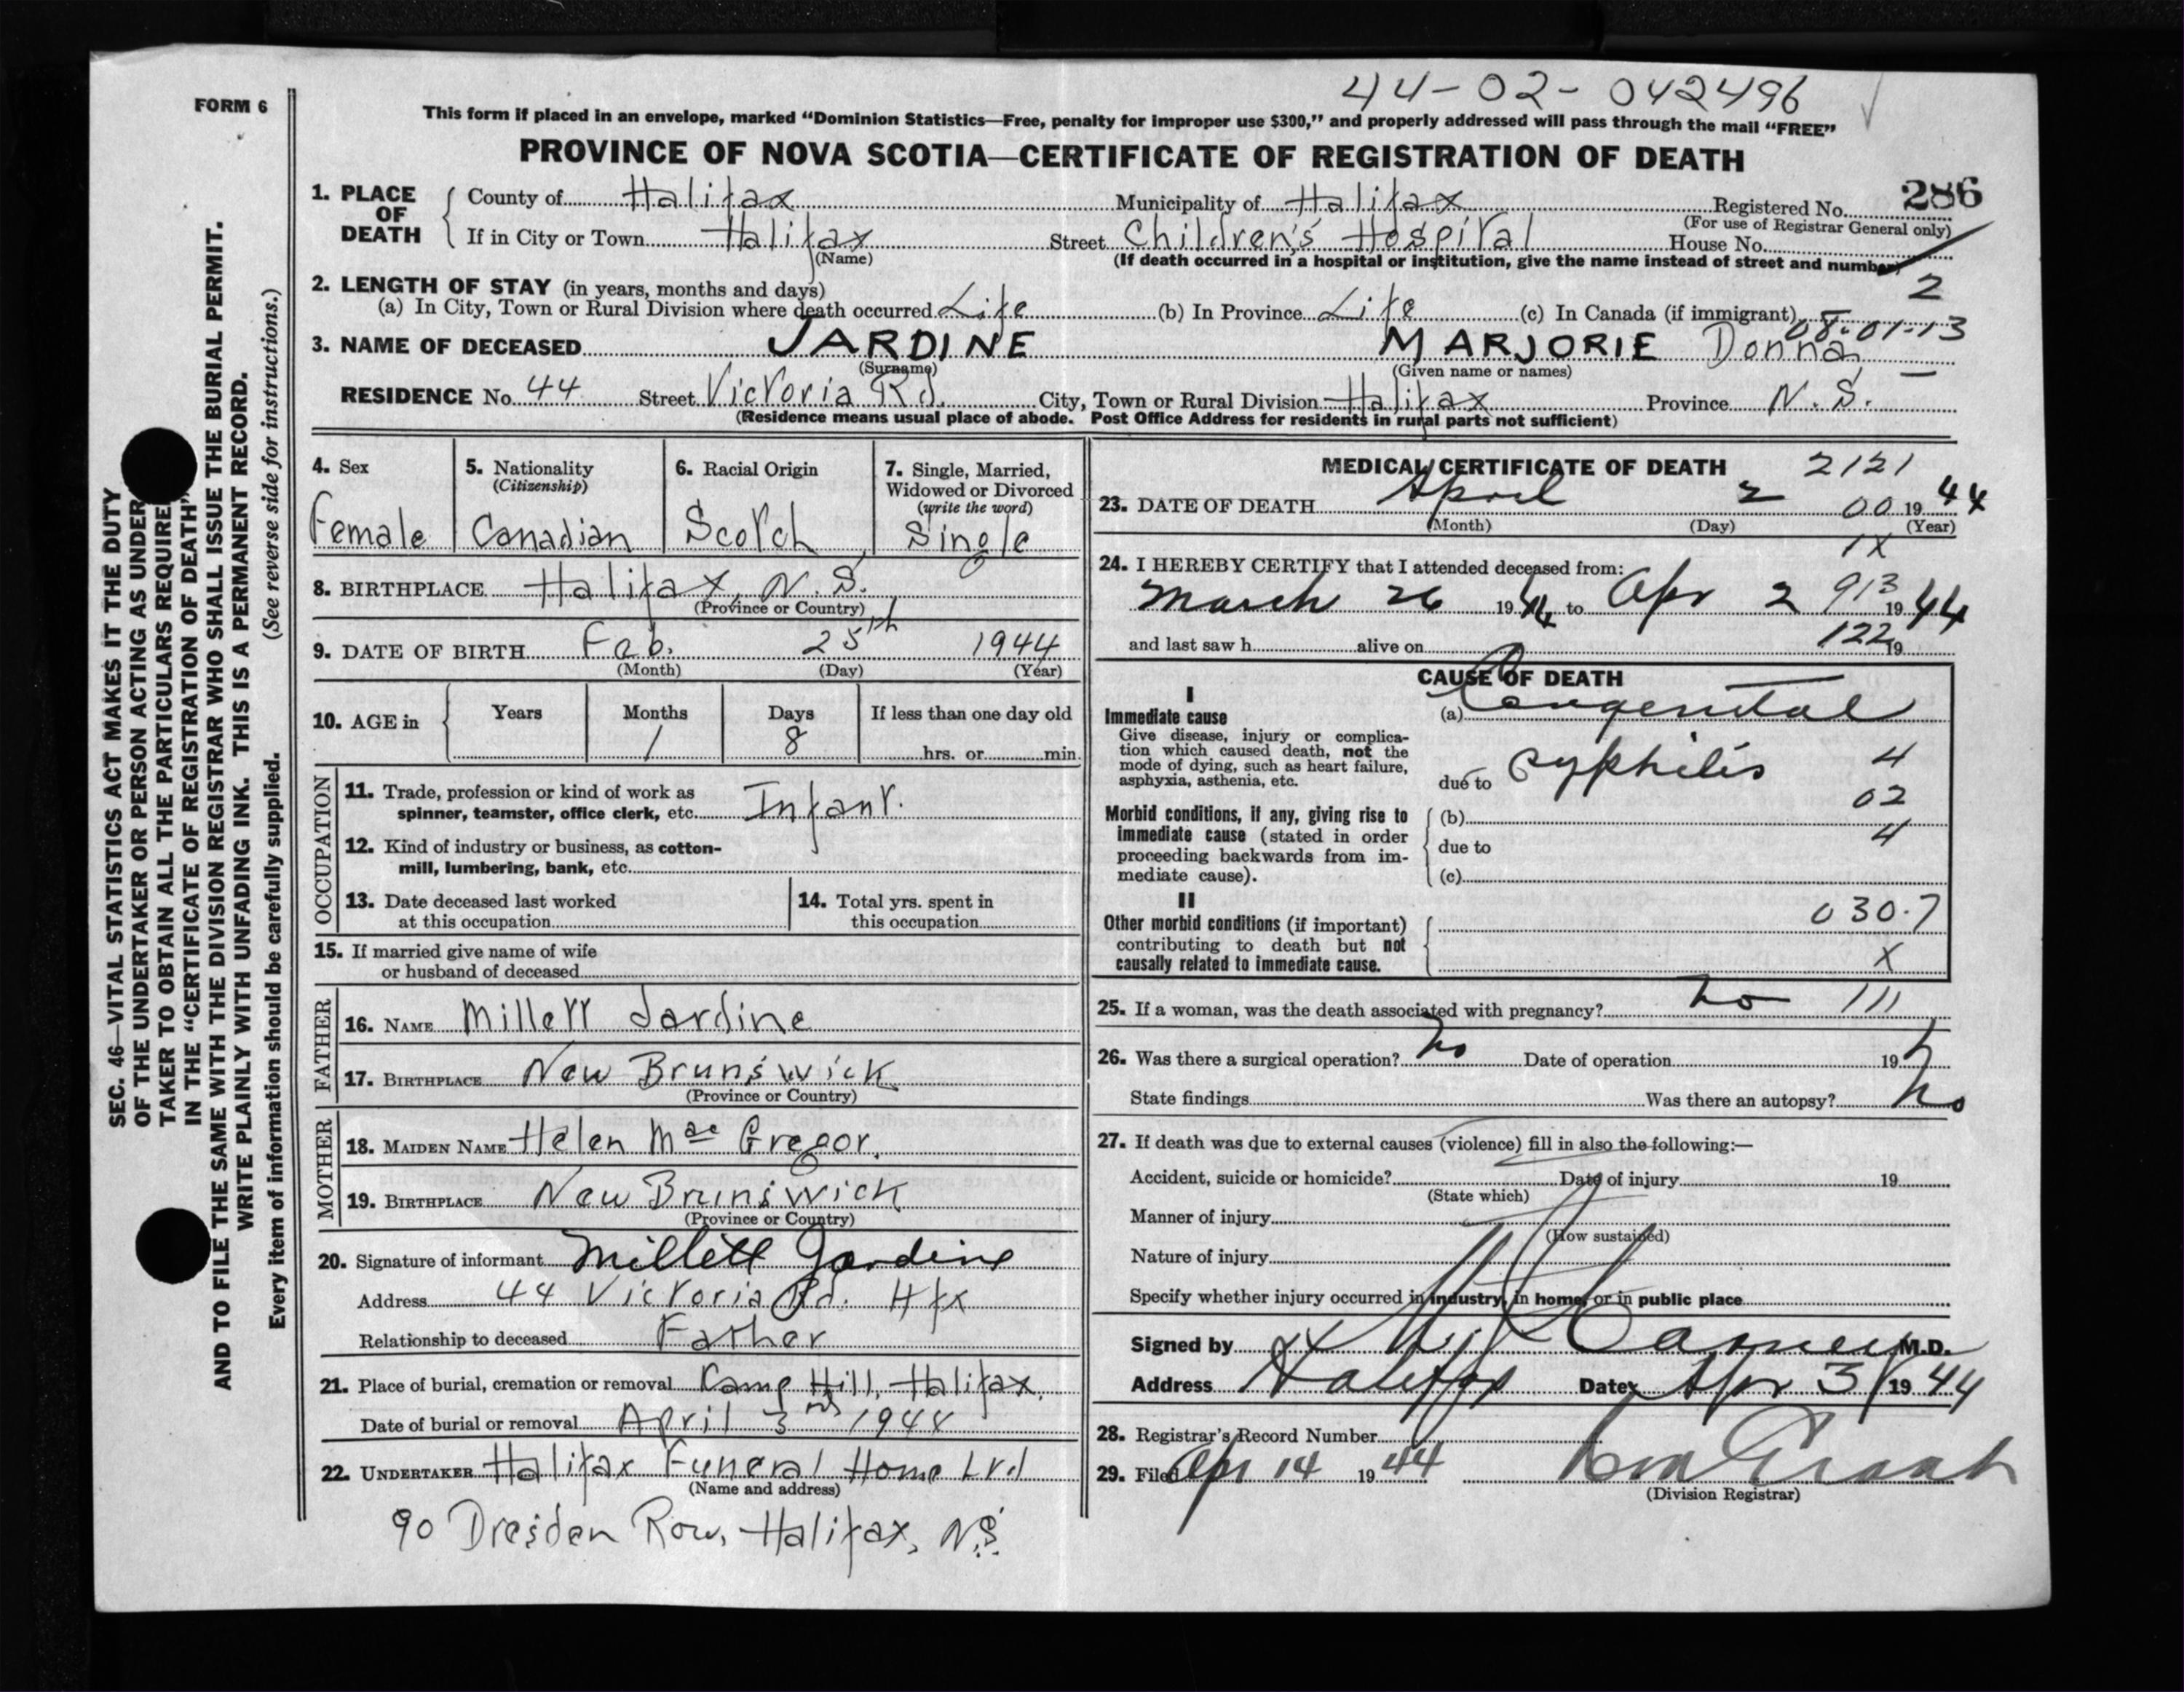 44-02-042496
FORM 6
This form if placed in an envelope, marked “Dominion Statistics—Free, penalty for improper use $300,” and properly addressed will pass through the mail “FREE”
PROVINCE OF NOVA SCOTIA—CERTIFICATE OF REGISTRATION OF DEATH
1. PLACE OF DEATH
County of Halifax Municipality of Halifax Registered No. 286
(For use of Registrar General only)
If in City or Town Halifax Street Children's Hospital House No.
(Name) (If death occurred in a hospital or institution, give the name instead of street and number)
2
2. LENGTH OF STAY (in years, months and days)
(a) In City, Town or Rural Division where death occurred Life (b) In Province Life (c) In Canada (if immigrant)
08-01-13
3. NAME OF DECEASED JARDINE MARJORIE Donna
(Surname) (Given name or names)
RESIDENCE No. 44 Street Victoria Rd. City, Town or Rural Division Halifax Province N.S.
(Residence means usual place of abode. Post Office Address for residents in rural parts not sufficient)
4. Sex
Female
5. Nationality
(Citizenship)
Canadian
6. Racial Origin
Scotch
7. Single, Married,
Widowed or Divorced
(write the word)
Single
8. BIRTHPLACE Halifax, N.S.
(Province or Country)
9. DATE OF BIRTH Feb. 25th 1944
(Month) (Day) (Year)
10. AGE in Years Months Days If less than one day old
1 8 hrs. or min.
OCCUPATION
11. Trade, profession or kind of work as
spinner, teamster, office clerk, etc. Infant.
12. Kind of industry or business, as cotton-
mill, lumbering, bank, etc.
13. Date deceased last worked
at this occupation
14. Total yrs. spent in
this occupation
15. If married give name of wife
or husband of deceased
FATHER
16. NAME Millett Jardine
17. BIRTHPLACE New Brunswick
(Province or Country)
MOTHER
18. MAIDEN NAME Helen Mac Gregor.
19. BIRTHPLACE New Brunswick
(Province or Country)
20. Signature of informant Millett Jardine
Address 44 Victoria Rd. Hfx
Relationship to deceased Father
21. Place of burial, cremation or removal Camp Hill, Halifax.
Date of burial or removal April 3rd 1944
22. UNDERTAKER Halifax Funeral Home Ltd
(Name and address)
90 Dresden Row, Halifax, N.S.
MEDICAL CERTIFICATE OF DEATH 2121
23. DATE OF DEATH April 2 00 1944
(Month) (Day) (Year)
1X
24. I HEREBY CERTIFY that I attended deceased from:
March 26 1944 to Apr 2 913 1944
and last saw h alive on 122 19
CAUSE OF DEATH
I
Immediate cause
Give disease, injury or complica-
tion which caused death, not the
mode of dying, such as heart failure,
asphyxia, asthenia, etc.
(a) Congenital
due to syphilis 4
02
Morbid conditions, if any, giving rise to
immediate cause (stated in order
proceeding backwards from im-
mediate cause).
(b)
due to 4
(c)
II
Other morbid conditions (if important)
contributing to death but not
causally related to immediate cause.
030.7
X
25. If a woman, was the death associated with pregnancy? no 111
26. Was there a surgical operation? no Date of operation 19
State findings Was there an autopsy? no
27. If death was due to external causes (violence) fill in also the following:—
Accident, suicide or homicide? Date of injury 19
(State which)
Manner of injury
(How sustained)
Nature of injury
Specify whether injury occurred in industry, in home, or in public place
Signed by M.D.
Address Halifax Date Apr 3 1944
28. Registrar's Record Number
29. Filed Apr 14 1944
(Division Registrar)
SEC. 46—VITAL STATISTICS ACT MAKES IT THE DUTY
OF THE UNDERTAKER OR PERSON ACTING AS UNDER
TAKER TO OBTAIN ALL THE PARTICULARS REQUIRE
IN THE “CERTIFICATE OF REGISTRATION OF DEATH”
AND TO FILE THE SAME WITH THE DIVISION REGISTRAR WHO SHALL ISSUE THE BURIAL PERMIT.
WRITE PLAINLY WITH UNFADING INK. THIS IS A PERMANENT RECORD.
Every item of information should be carefully supplied. (See reverse side for instructions.)